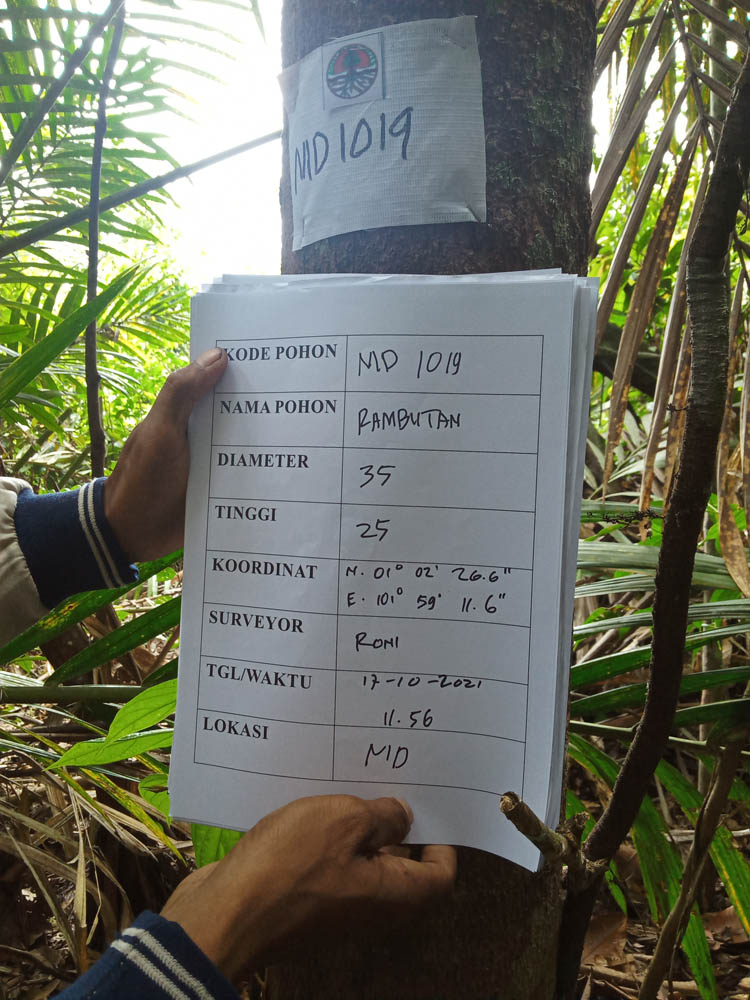 MD 1019
KODE POHON MD 1019
NAMA POHON RAMBUTAN
DIAMETER 35
TINGGI 25
KOORDINAT N. 01° 02' 26.6"
E. 101° 59' 11.6"
SURVEYOR RONI
TGL/WAKTU 17-10-2021
11.56
LOKASI MD